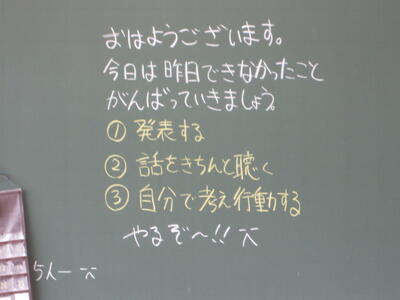 おはようございます。
今日は昨日できなかったこと
がんばっていきましょう。
① 発表する
② 話をきちんと聴く
③ 自分で考え行動する
やるぞ〜!!
5人一